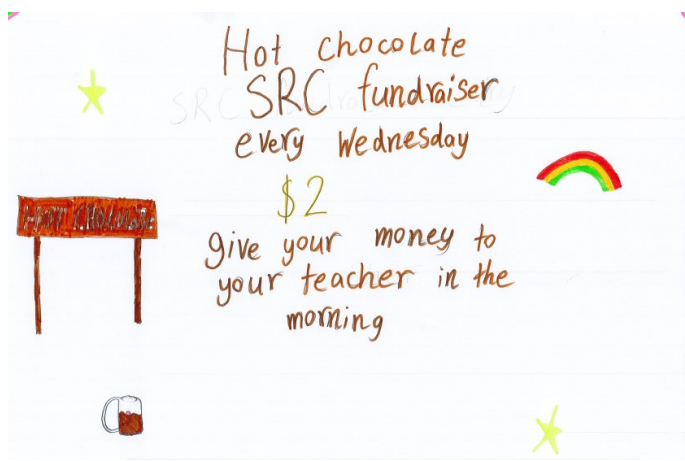 Hot chocolate
SRC fundraiser
every Wednesday
$2
give your money to
your teacher in the
morning
HOT